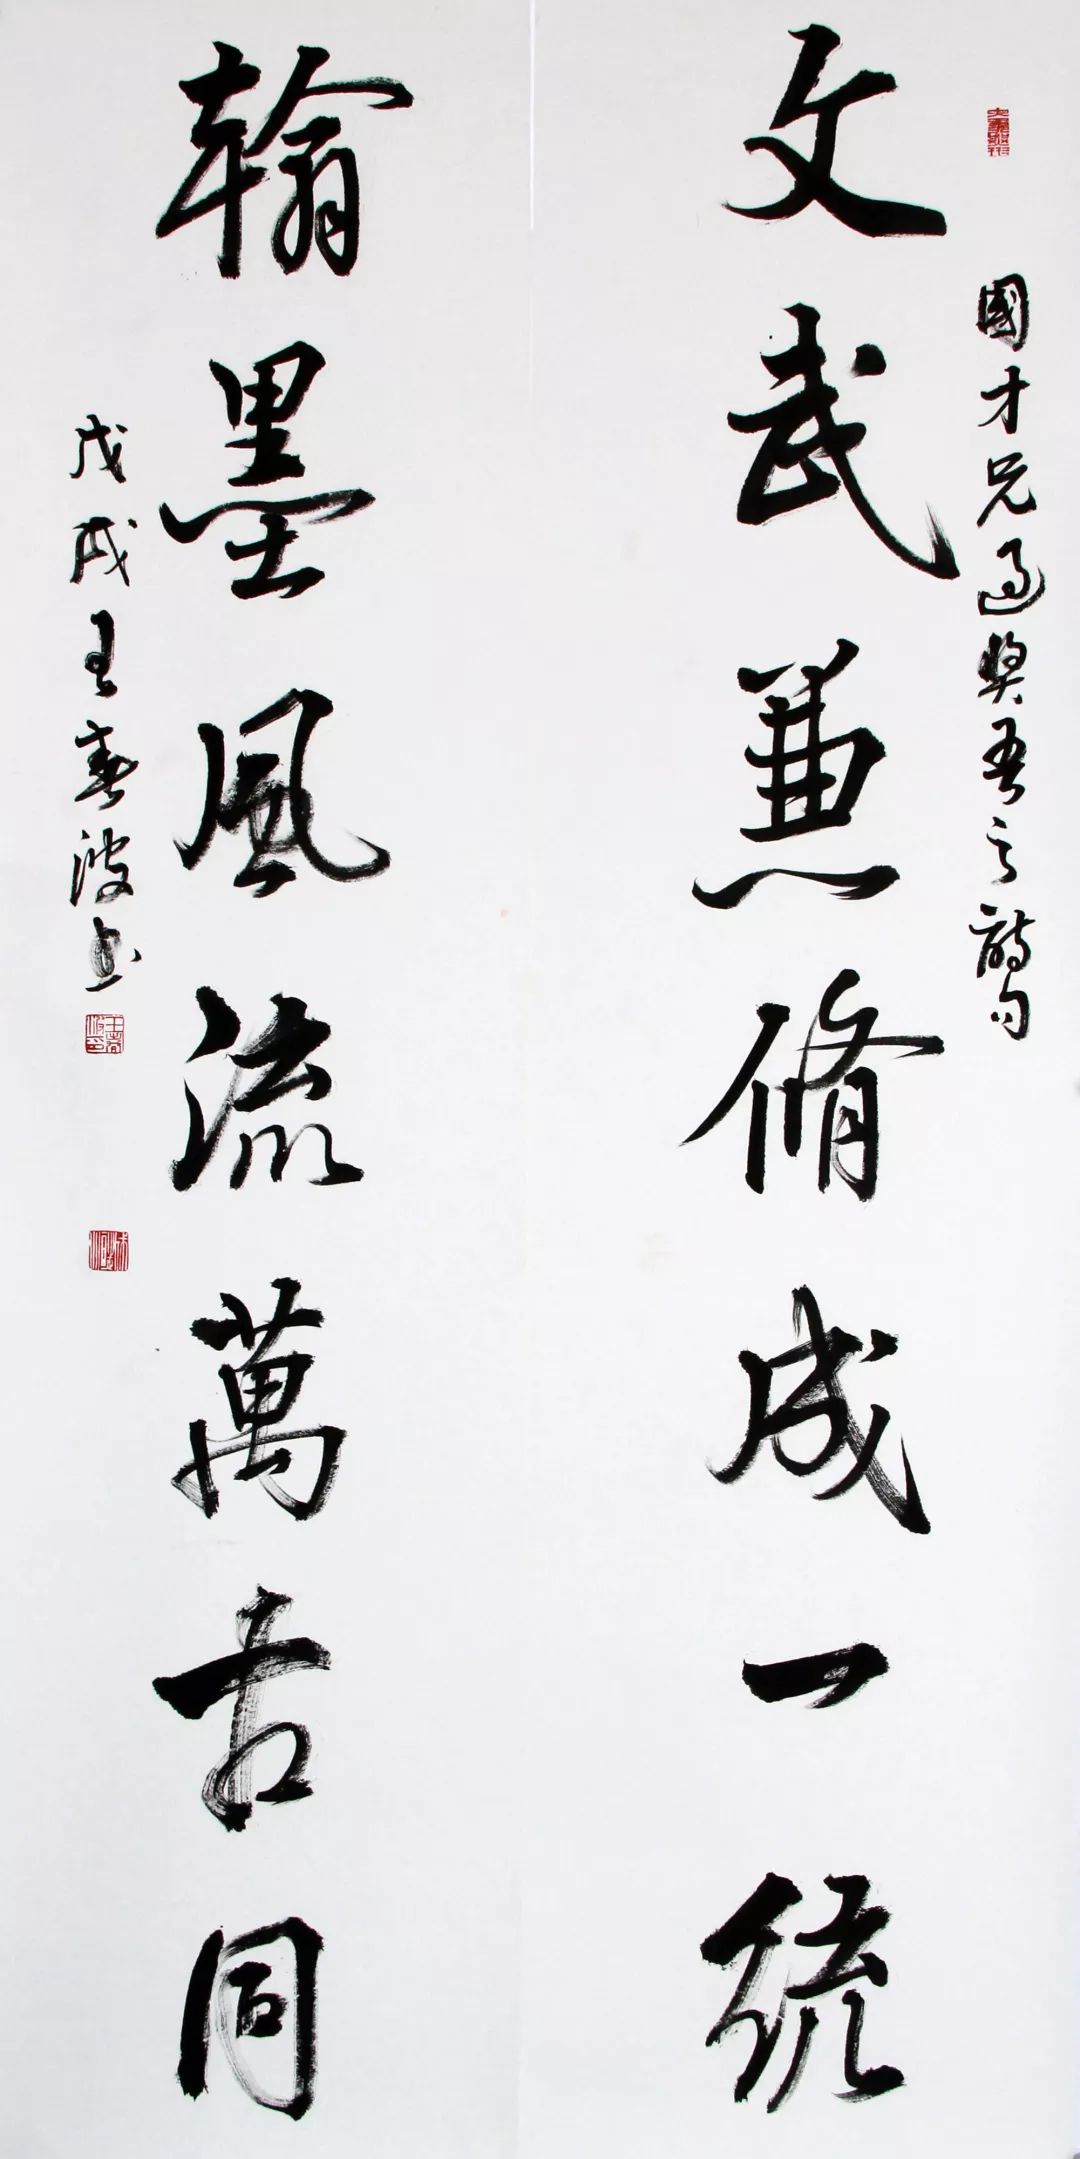 國才兄過奨吾之詩句
文武兼脩成一統
翰墨風流萬古同
戊戌王春波书